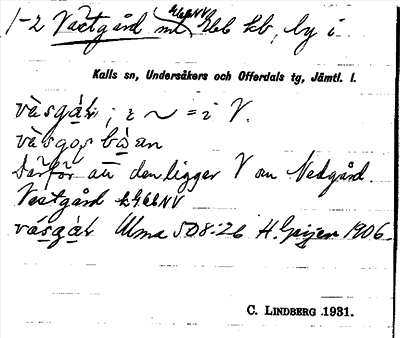 1-2 Västgård
by i
Kalls sn, Undersåkers och Offerdals tg, Jämtl. l.
vàsgár ; i ~ = i V.
vàsgos bàan
Därför att den ligger V om Nedgård.
Västgård
vásgár Ulma 508:26 H. Geijer 1906.
C. LINDBERG 1931.